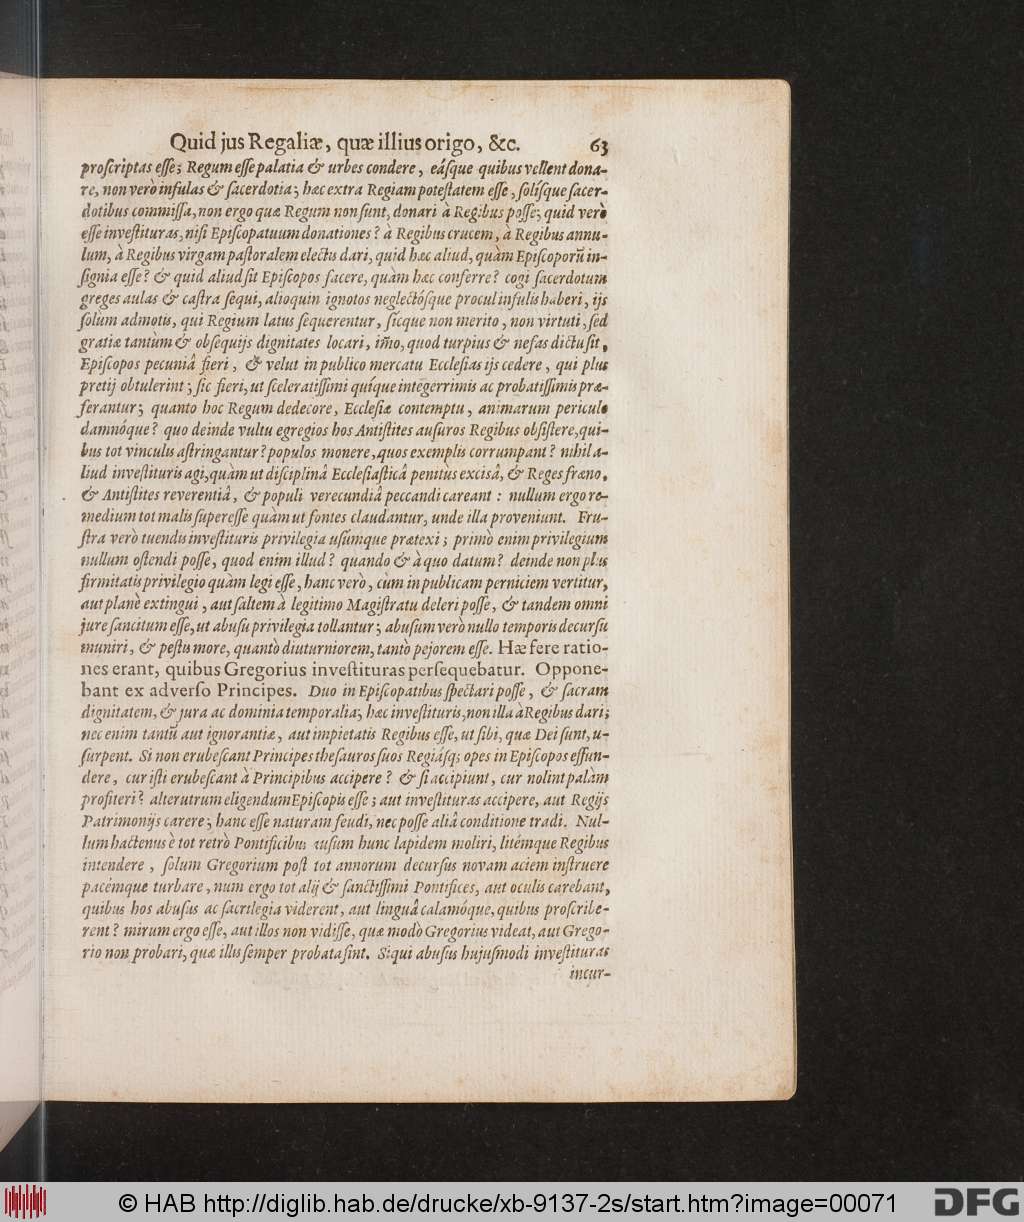 Quid jus Regaliæ, quæ illius origo, &c. 63
proſcriptas eſſe; Regum eſſe palatia & urbes condere, eáſque quibus vellent dona-
re, non verò infulas & ſacerdotia; hæc extra Regiam poteſtatem eſſe, ſolíſque ſacer-
dotibus commiſſa, non ergo quæ Regum non ſunt, donari à Regibus poſſe; quid verò
eſſe inveſtituras, niſi Epiſcopatuum donationes? à Regibus crucem, à Regibus annu-
lum, à Regibus virgam paſtoralem electis dari, quid hæc aliud, quàm Epiſcoporũ in-
ſignia eſſe? & quid aliud ſit Epiſcopos facere, quàm hæc conferre? cogi ſacerdotum
greges aulas & caſtra ſequi, alioquin ignotos neglectóſque procul infulis haberi, ijs
ſolùm admotis, qui Regium latus ſequerentur, ſicque non merito, non virtuti, ſed
gratiæ tantùm & obſequijs dignitates locari, im̃o, quod turpius & nefas dictu ſit,
Epiſcopos pecuniâ fieri, & velut in publico mercatu Eccleſias ijs cedere, qui plus
pretij obtulerint; ſic fieri, ut ſceleratiſſimi quíque integerrimis ac probatiſſimis præ-
ferantur; quanto hoc Regum dedecore, Eccleſiæ contemptu, animarum periculo
damnóque? quo deinde vultu egregios hos Antiſtites auſuros Regibus obſiſtere, qui-
bus tot vinculis aſtringantur? populos monere, quos exemplis corrumpant? nihil a-
liud inveſtituris agi, quàm ut diſciplinâ Eccleſiaſticâ penitùs exciſâ, & Reges fræno,
& Antiſtites reverentiâ, & populi verecundiâ peccandi careant: nullum ergo re-
medium tot malis ſupereſſe quàm ut fontes claudantur, unde illa proveniunt. Fru-
ſtra verò tuendis inveſtituris privilegia uſúmque prætexi; primò enim privilegium
nullum oſtendi poſſe, quod enim illud? quando & à quo datum? deinde non plus
firmitatis privilegio quàm legi eſſe, hanc verò, cùm in publicam perniciem vertitur,
aut planè extingui, aut ſaltem à legitimo Magiſtratu deleri poſſe, & tandem omni
jure ſancitum eſſe, ut abuſu privilegia tollantur; abuſum verò nullo temporis decurſu
muniri, & peſtis more, quantò diuturniorem, tantò pejorem eſſe. Hæ fere ratio-
nes erant, quibus Gregorius inveſtituras perſequebatur. Oppone-
bant ex adverſo Principes. Duo in Epiſcopatibus ſpectari poſſe, & ſacram
dignitatem, & jura ac dominia temporalia; hæc inveſtituris, non illa à Regibus dari;
nec enim tantũ aut ignorantiæ, aut impietatis Regibus eſſe, ut ſibi, quæ Dei ſunt, u-
ſurpent. Si non erubeſcant Principes theſauros ſuos Regiáſq; opes in Epiſcopos effun-
dere, cur iſti erubeſcant à Principibus accipere? & ſi accipiunt, cur nolint palàm
profiteri? alterutrum eligendum Epiſcopis eſſe; aut inveſtituras accipere, aut Regijs
Patrimonijs carere; hanc eſſe naturam feudi, nec poſſe aliâ conditione tradi. Nul-
lum hactenus è tot retrò Pontificibus auſum hunc lapidem moliri, litémque Regibus
intendere, ſolum Gregorium poſt tot annorum decurſus novam aciem inſtruere
pacémque turbare, num ergo tot alij & ſanctiſſimi Pontifices, aut oculis carebant,
quibus hos abuſus ac ſacrilegia viderent, aut linguâ calamóque, quibus proſcribe-
rent? mirum ergo eſſe, aut illos non vidiſſe, quæ modò Gregorius videat, aut Grego-
rio non probari, quæ illis ſemper probata ſint. Siqui abuſus hujuſmodi inveſtituras
incur-
© HAB http://diglib.hab.de/drucke/xb-9137-2s/start.htm?image=00071
DFG